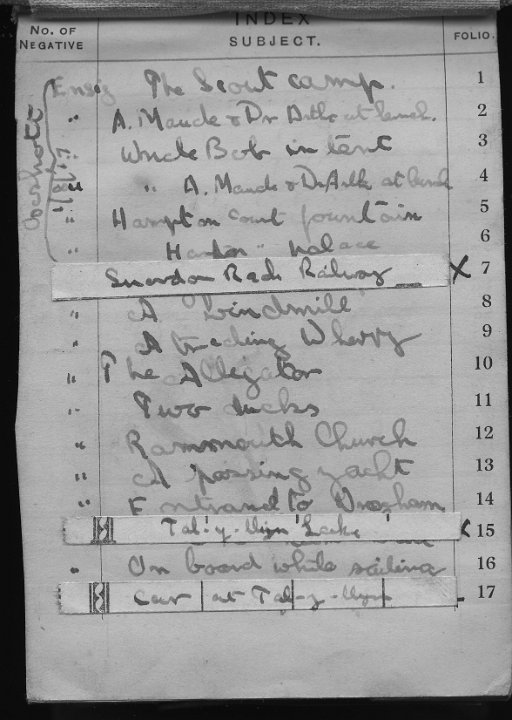 No. OF NEGATIVE INDEX SUBJECT. FOLIO.
Ensig The Scout camp. 1
" A. Maude & Dr Arth at lunch. 2
Uncle Bob in tent 3
" " A. Maude & Dr Arth at lunch 4
" Hampton court fountain 5
" Hampton " palace 6
Snowdon Rack Railway X 7
" A Windmill 8
" A Wherry 9
" The Alligator 10
" Two ducks 11
" Church 12
" A passing yacht 13
" Entrance to 14
Tal-y-llyn Lake X 15
" On board while sailing 16
Car at Tal-y-llyn 17